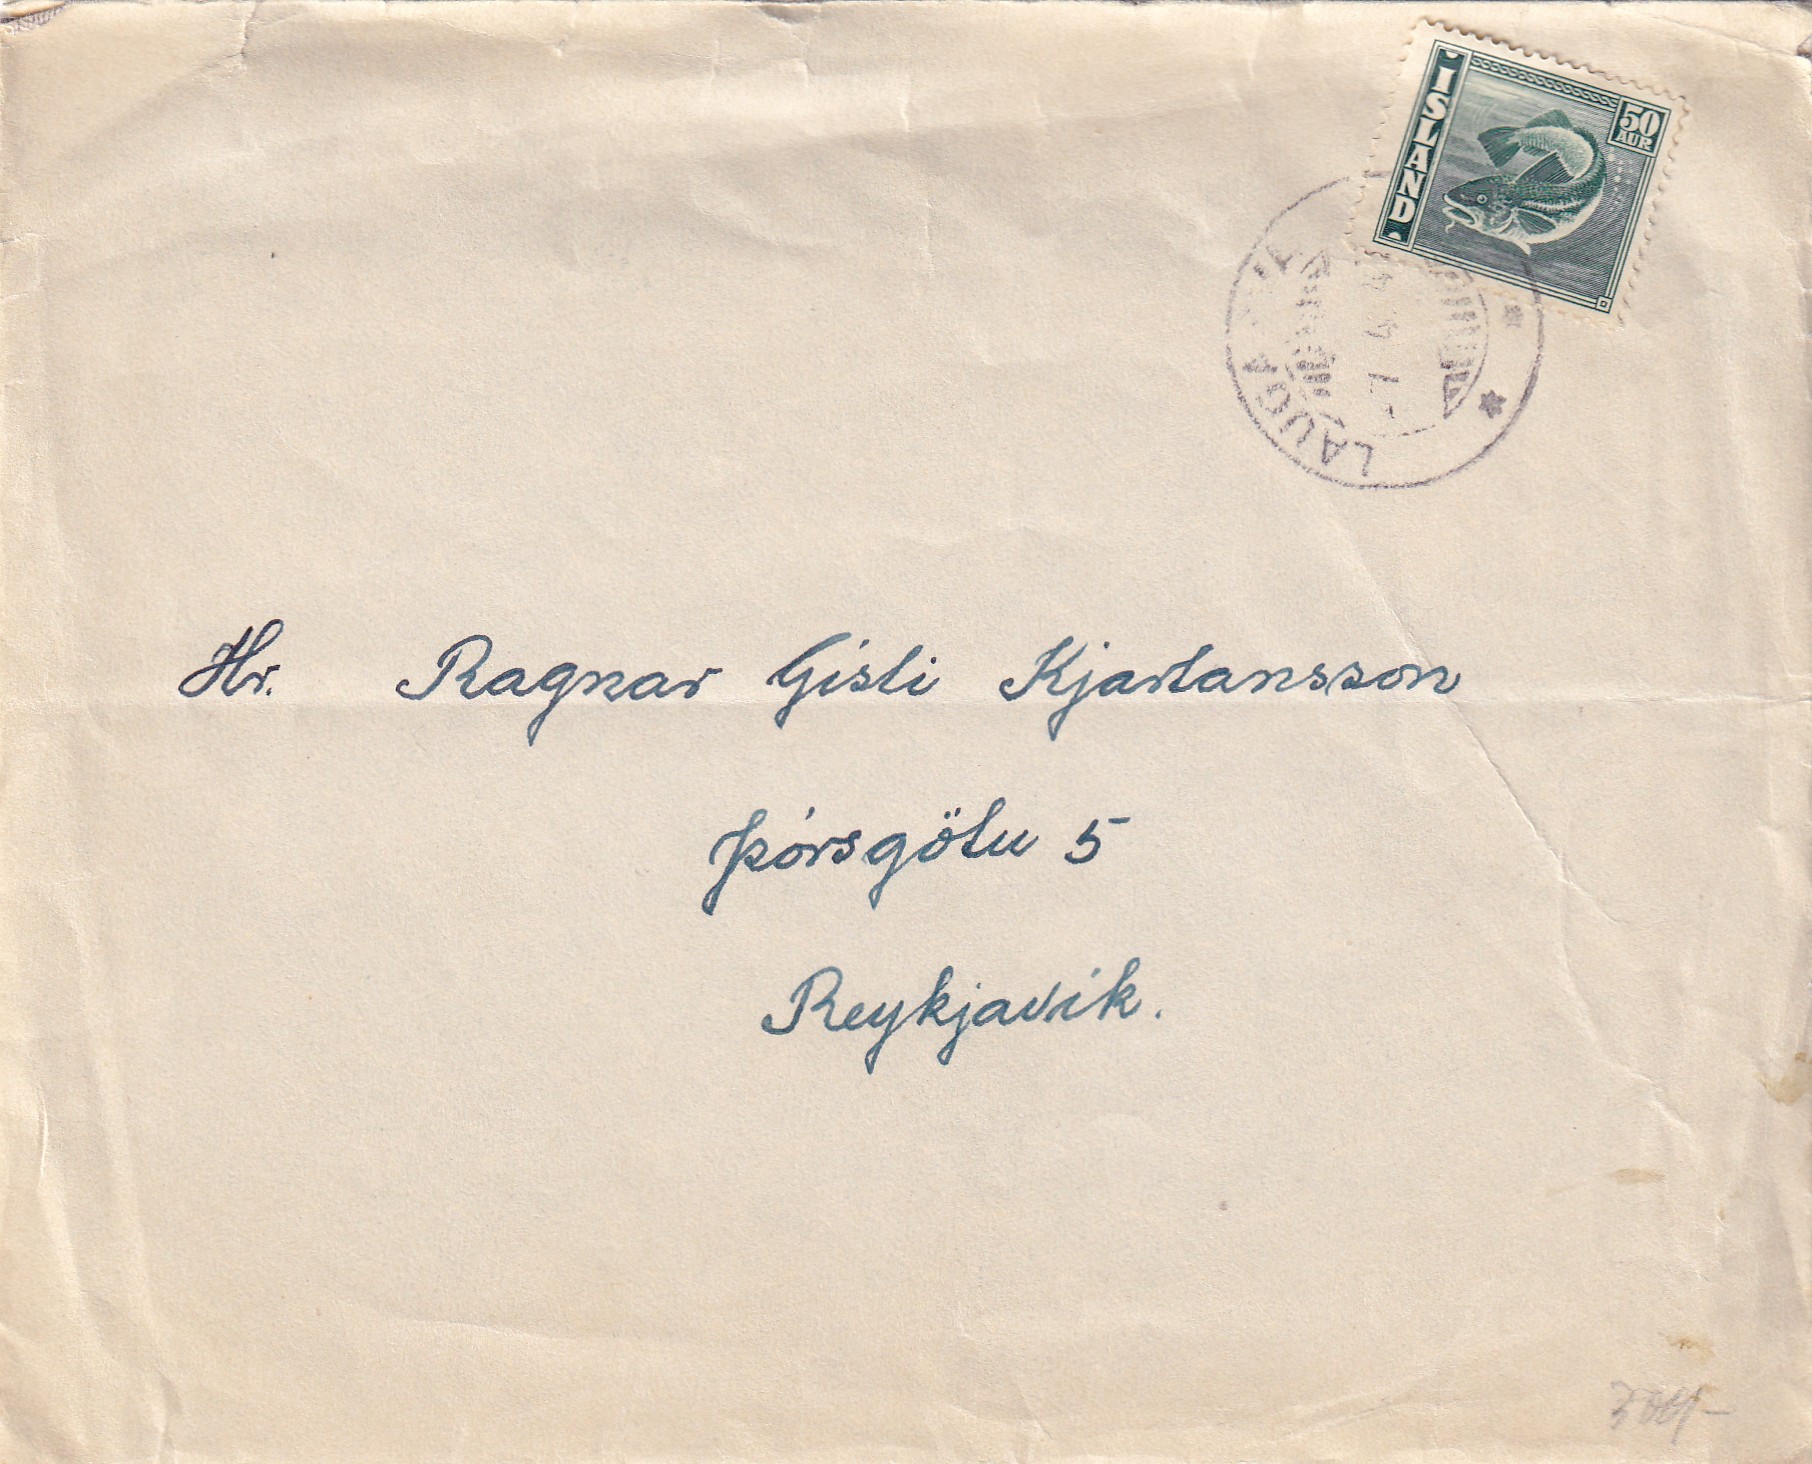 ÍSLAND
50
AUR
Hr. Ragnar Gísli Kjartansson
Þórsgötu 5
Reykjavík.